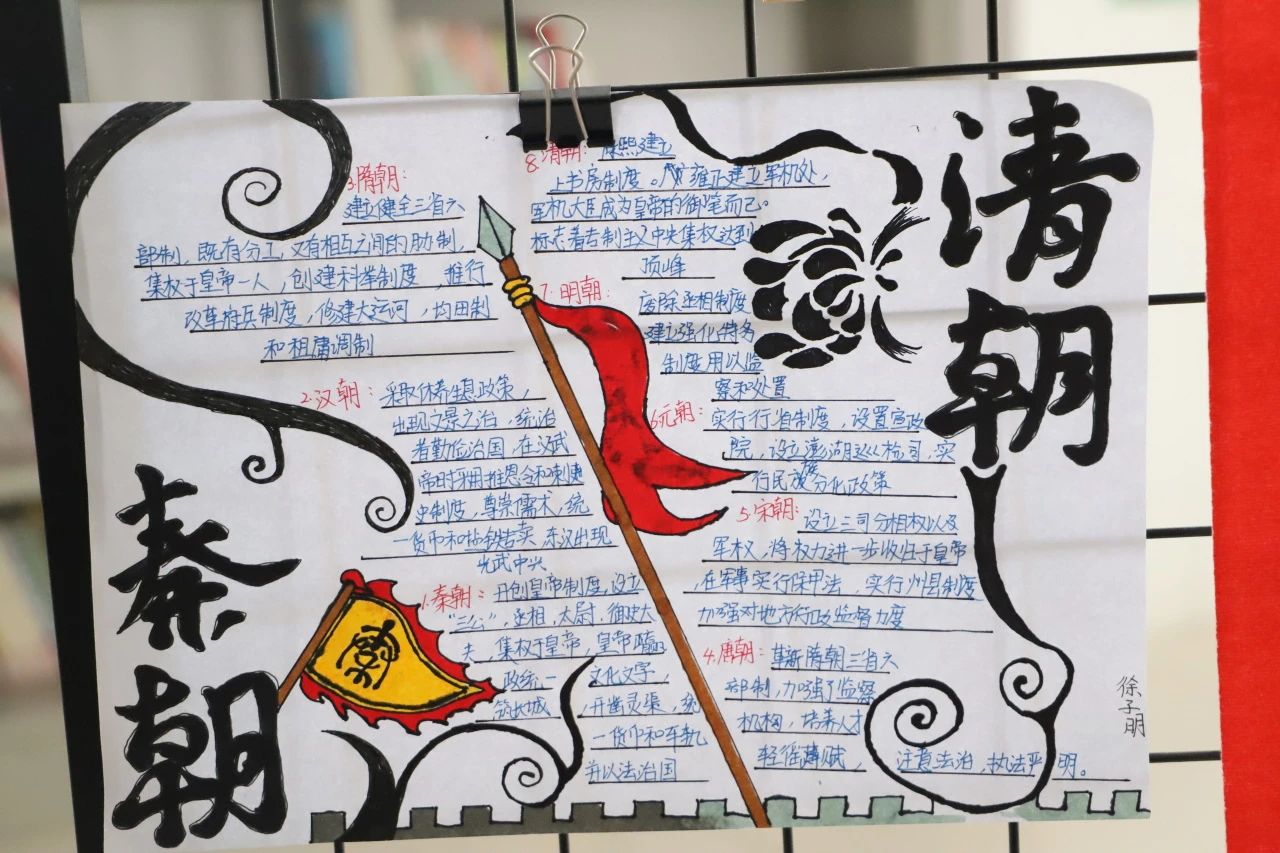 秦朝
清朝
1.秦朝：开创皇帝制度，设立
"三公"，丞相，太尉，御史大
夫，集权于皇帝，皇帝
政统一 文化文字
筑长城，开凿灵渠，统
一货币和车轨
并以法治国
2.汉朝：采取休养生息政策，
出现文景之治，统治
者勤俭治国，在汉武
帝时采用推恩令和刺史
史制度，尊崇儒术，统
一货币和盐铁专卖，东汉出现
光武中兴
3.隋朝：
建立健全三省六
部制，既有分工，又有相互之间的制，
集权于皇帝一人，创建科举制度，推行
改革府兵制度，修建大运河，均田制
和租庸调制
4.唐朝：革新隋朝三省六
部制，加强了监察
机构，培养人才
轻徭薄赋，注意法治，执法严明。
5.宋朝：设立三司分相权以及
军权，将权力进一步收归于皇帝
，在军事实行保甲法，实行州县制度
加强对地方行政监督力度
6.元朝：实行行省制度，设置宣政
院，设立澎湖巡检司，实
行民族分化政策
7.明朝：废除丞相制度
建立强化特务
制度用以监
察和处置
8.清朝：康熙建立
上书房制度。雍正建立军机处，
军机大臣成为皇帝的御笔而已。
标志着专制主义中央集权达到
顶峰
秦
徐子明